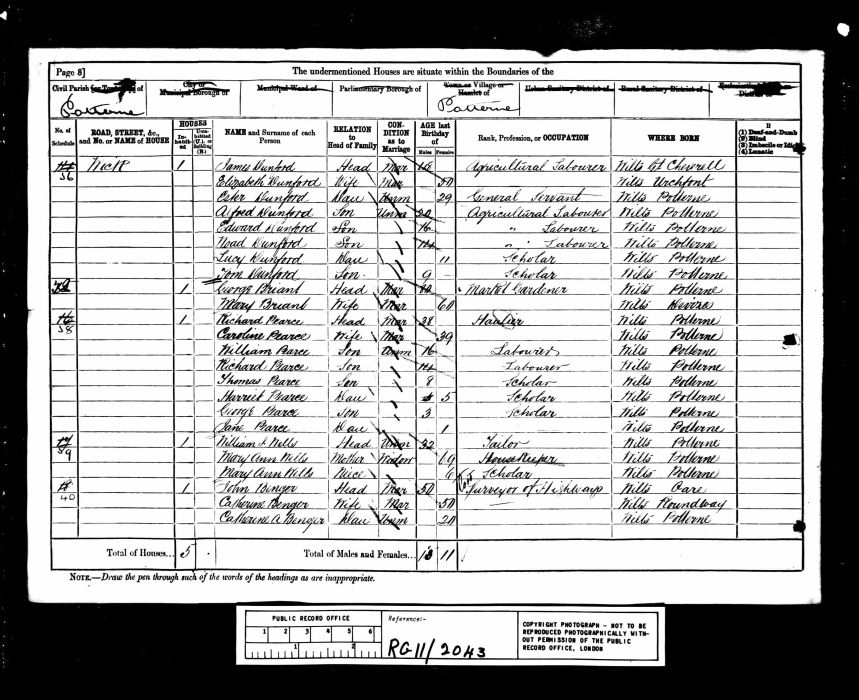 Page 8]
The undermentioned Houses are situate within the Boundaries of the
Civil Parish of
City or Municipal Borough of
Municipal Ward of
Parliamentary Borough of
Village or Hamlet of
Urban Sanitary District of
Rural Sanitary District of
District of
Potterne
Potterne
No. of Schedule
ROAD, STREET, &c., and No. or NAME of HOUSE
HOUSES
Inhabited
Uninhabited (U.), or Building (B.)
NAME and Surname of each Person
RELATION to Head of Family
CONDITION as to Marriage
AGE last Birthday of
Males
Females
Rank, Profession, or OCCUPATION
WHERE BORN
If
(1) Deaf-and-Dumb
(2) Blind
(3) Imbecile or Idiot
(4) Lunatic
36 1 James Dunford Head Mar Agricultural Labourer Wilts Gt Cheverell
Elizabeth Dunford Wife Mar 50 Wilts Urchfont
Ester Dunford Dau Unm 29 General Servant Wilts Potterne
Alfred Dunford Son Unm 20 Agricultural Labourer Wilts Potterne
Edward Dunford Son 16 " Labourer Wilts Potterne
Noad Dunford Son 14 " Labourer Wilts Potterne
Lucy Dunford Dau 11 Scholar Wilts Potterne
Tom Dunford Son 9 – Scholar Wilts Potterne
1 George Briant Head Mar Market Gardener Wilts Potterne
Mary Briant Wife Mar 60 Wilts Devizes
38 1 Richard Pearce Head Mar 38 Haulier Wilts Potterne
Caroline Pearce Wife Mar 39 Wilts Potterne
William Pearce Son Unm 16 Labourer Wilts Potterne
Richard Pearce Son 14 Labourer Wilts Potterne
Thomas Pearce Son 8 Scholar Wilts Potterne
Harriet Pearce Dau 5 Scholar Wilts Potterne
George Pearce Son 3 Scholar Wilts Potterne
Jane Pearce Dau 1 Wilts Potterne
39 1 William Wells Head Unm Tailor Wilts Potterne
Mary Ann Wells Mother Widow 69 House Keeper Wilts Potterne
Mary Ann Wells Niece Scholar Wilts Potterne
40 1 John Benger Head Mar 50 Surveyor of Highways Wilts
Catherine Benger Wife Mar 50 — Wilts Roundway
Catherine A Benger Dau Unm 20 Wilts Potterne
Total of Houses... 5
Total of Males and Females... 13 11
NOTE.—Draw the pen through such of the words of the headings as are inappropriate.
PUBLIC RECORD OFFICE
1 2 3 4 5 6
1 2
Reference:-
RG11/2043
COPYRIGHT PHOTOGRAPH - NOT TO BE
REPRODUCED PHOTOGRAPHICALLY WITH-
OUT PERMISSION OF THE PUBLIC
RECORD OFFICE, LONDON